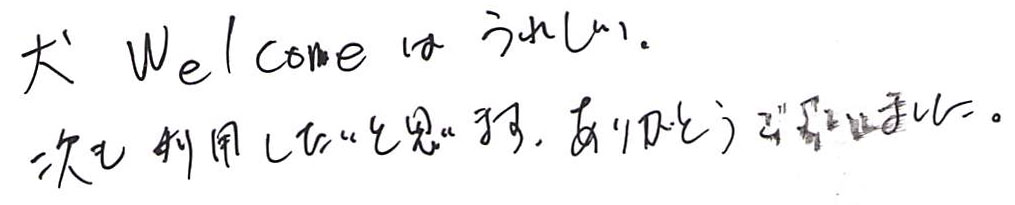 犬 Welcomeはうれしい。
次も利用したいと思います。ありがとうございました。